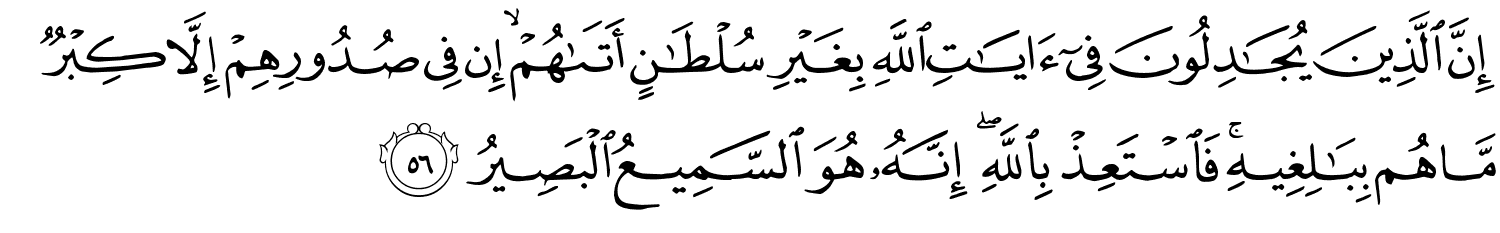 إِنَّ ٱلَّذِينَ يُجَٰدِلُونَ فِىٓ ءَايَٰتِ ٱللَّهِ بِغَيْرِ سُلْطَٰنٍ أَتَىٰهُمْ ۙ إِن فِى صُدُورِهِمْ إِلَّا كِبْرٌ
مَّا هُم بِبَٰلِغِيهِ ۚ فَٱسْتَعِذْ بِٱللَّهِ ۖ إِنَّهُۥ هُوَ ٱلسَّمِيعُ ٱلْبَصِيرُ ٥٦